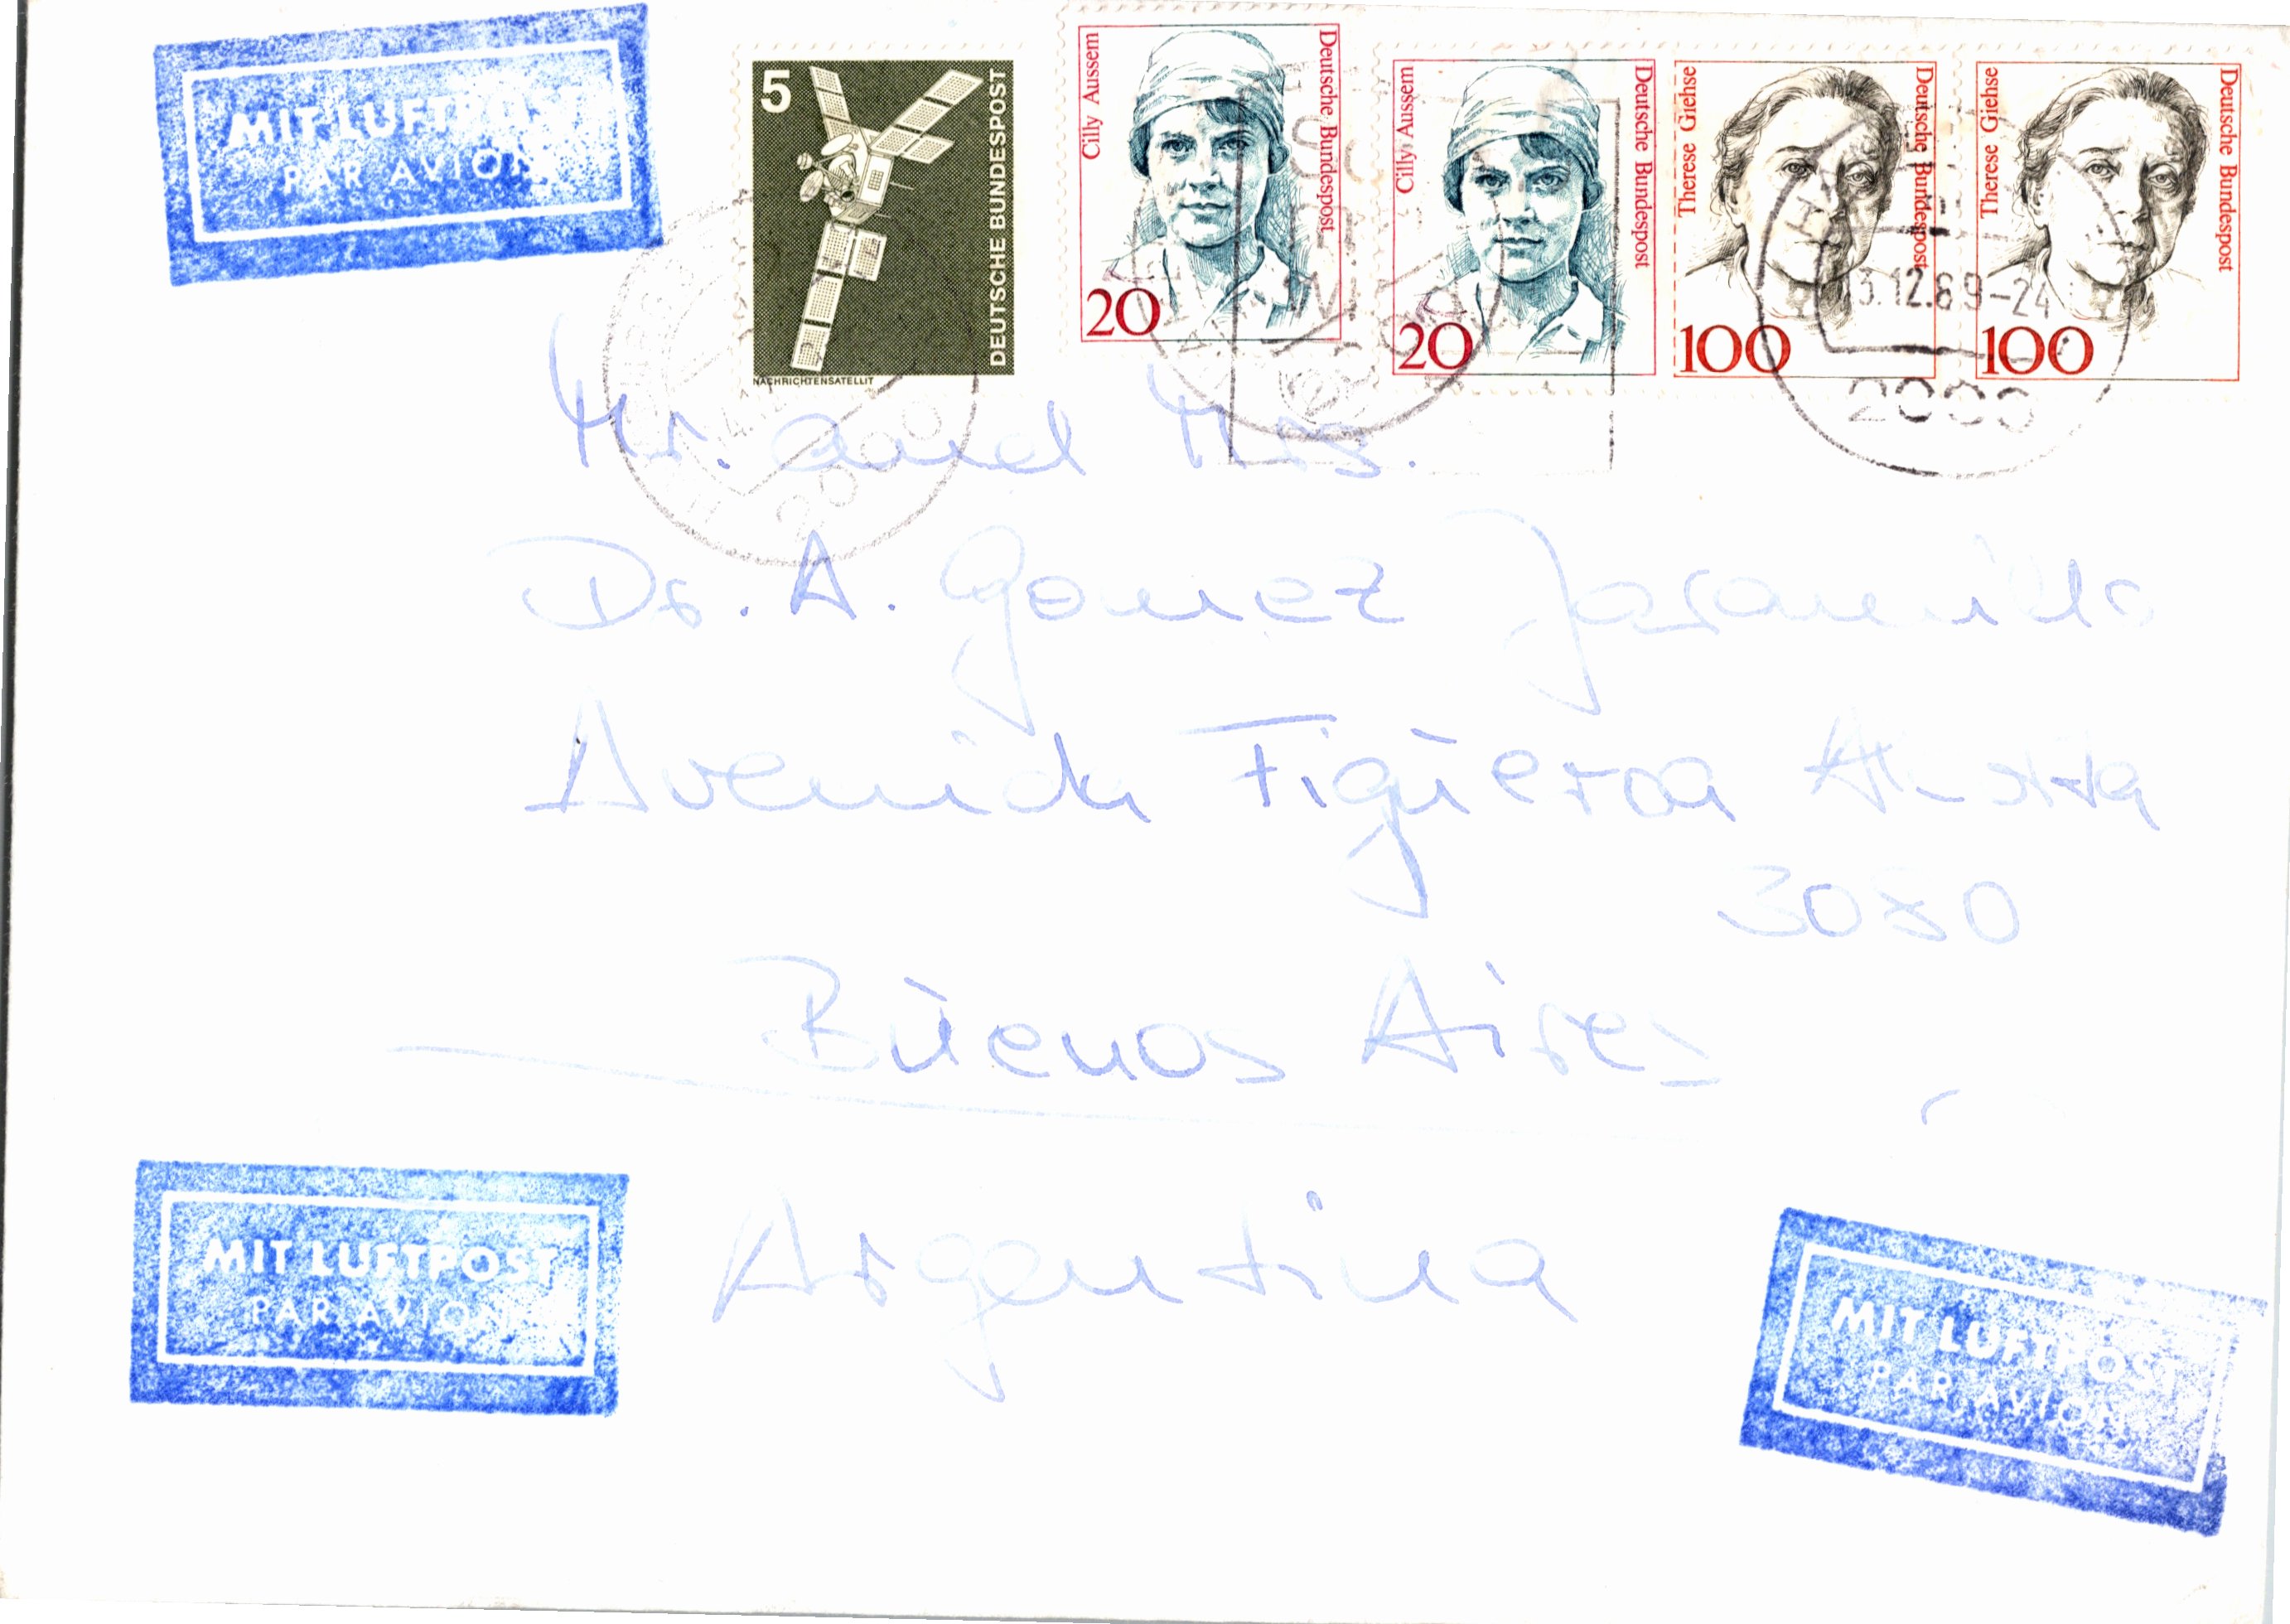 MIT LUFTPOST
PAR AVION
5
DEUTSCHE BUNDESPOST
NACHRICHTENSATELLIT
Cilly Aussem
Deutsche Bundespost
20
Cilly Aussem
Deutsche Bundespost
20
Therese Giehse
Deutsche Bundespost
100
Therese Giehse
Deutsche Bundespost
100
3.12.89-24
2000
Mr. and Mrs.
Dr. A. Gomez Jaramillo
Avenida Figueroa Alcorta
3050
Buenos Aires
Argentina
MIT LUFTPOST
PAR AVION
MIT LUFTPOST
PAR AVION